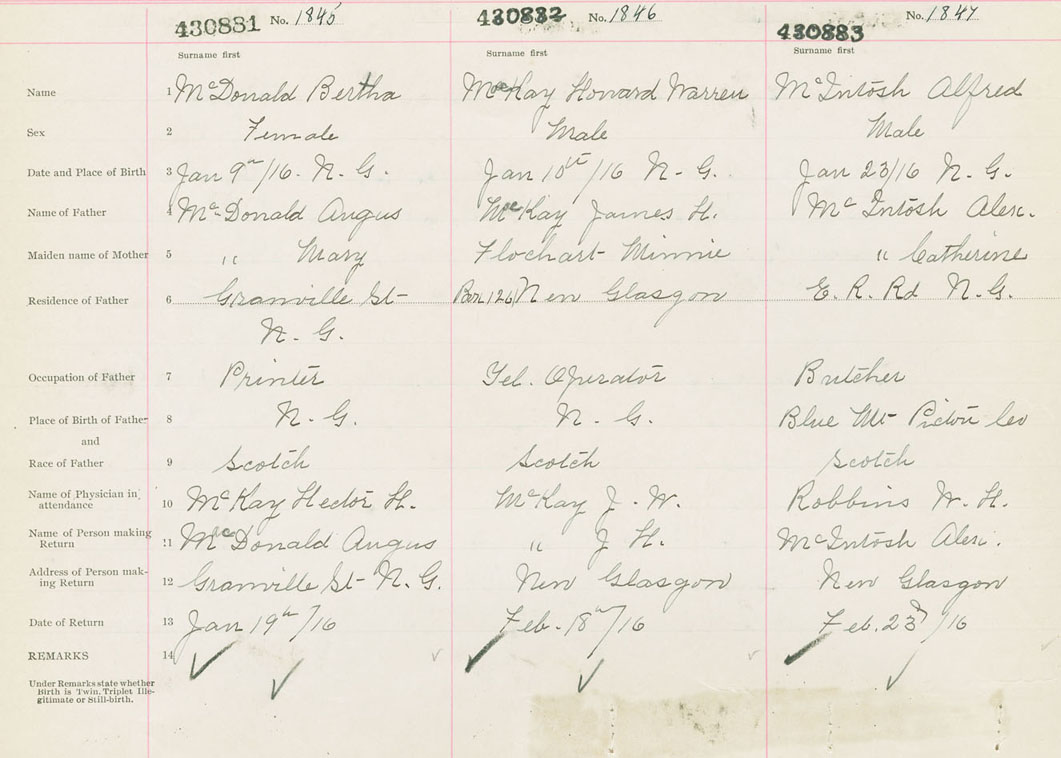 430881 No. 1845 430882 No. 1846 430883 No. 1847
Surname first Surname first Surname first
Name 1 McDonald Bertha McKay Howard Warren McIntosh Alfred
Sex 2 Female Male Male
Date and Place of Birth 3 Jan 9th/16. N. G. Jan 10th/16 N. G. Jan 23/16 N. G.
Name of Father 4 McDonald Angus McKay James H. McIntosh Alex.
Maiden name of Mother 5 " Mary Flochart Minnie " Catherine
Residence of Father 6 Granville St- Box 126 New Glasgow E. R. Rd N.G.
N. G.
Occupation of Father 7 Printer Tel. Operator Butcher
Place of Birth of Father 8 N. G. N. G. Blue Mt- Pictou Co
and
Race of Father 9 Scotch Scotch Scotch
Name of Physician in
attendance 10 McKay Hector H. McKay J. W. Robbins W. H.
Name of Person making
Return 11 McDonald Angus " J H. McIntosh Alex.
Address of Person mak-
ing Return 12 Granville St- N. G. New Glasgow New Glasgow
Date of Return 13 Jan 19th/16 Feb. 18th/16 Feb. 23d/16
REMARKS 14
Under Remarks state whether
Birth is Twin, Triplet Ille-
gitimate or Still-birth.